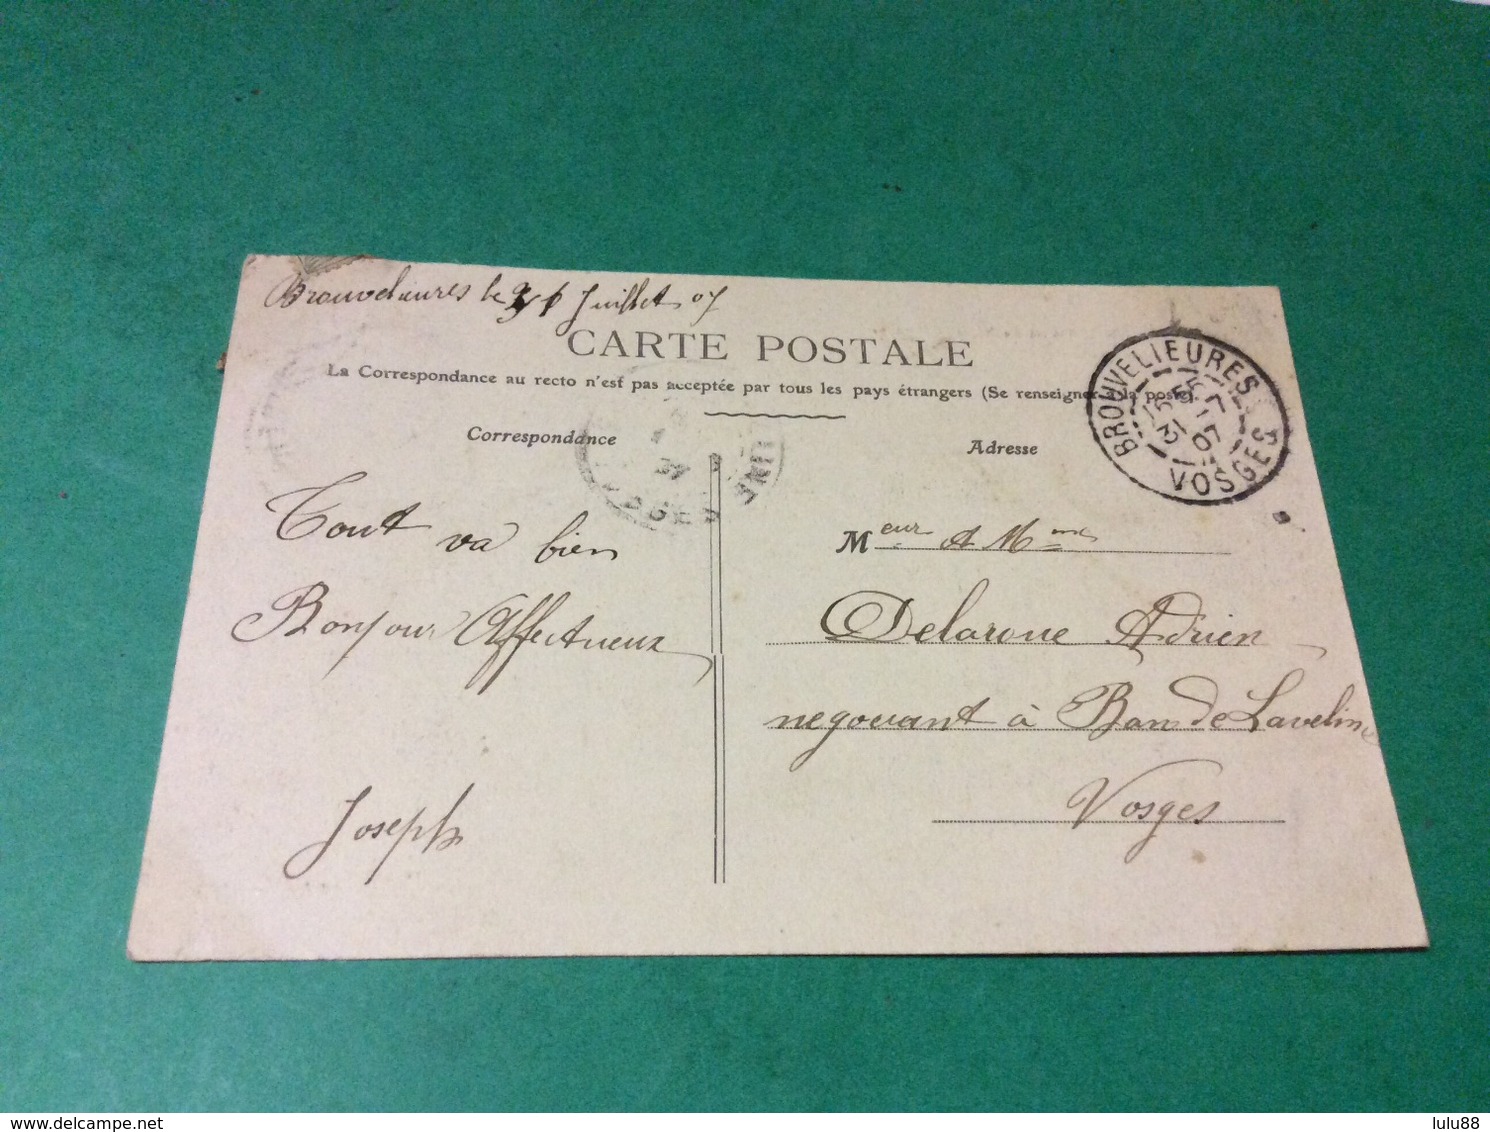 Brouvelieures le 31 Juillet 07
CARTE POSTALE
La Correspondance au recto n'est pas acceptée par tous les pays étrangers (Se renseigner à la poste)
Correspondance
Adresse
BROUVELIEURES
31 07
VOSGES
Tout va bien
Bonjour Affectueux
Joseph
Meur & Mme
Delaroue Adrien
negouant à Ban de Laveline
Vosges
www.delcampe.net
lulu88